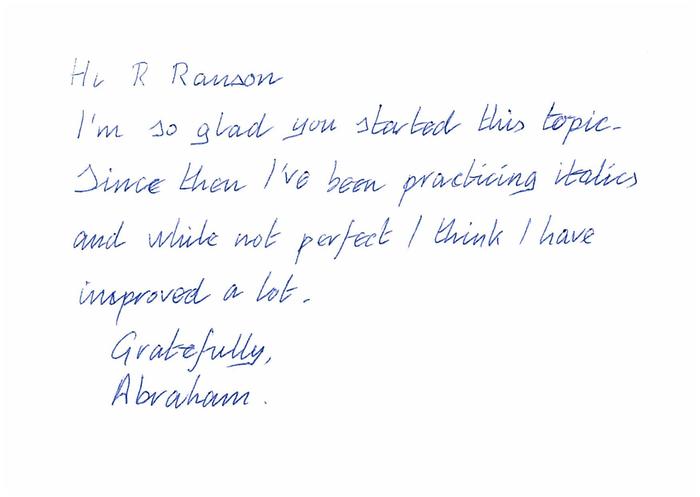 Hi R Ranson
I'm so glad you started this topic.
Since then I've been practicing italics
and while not perfect I think I have
improved a lot.
Gratefully,
Abraham.